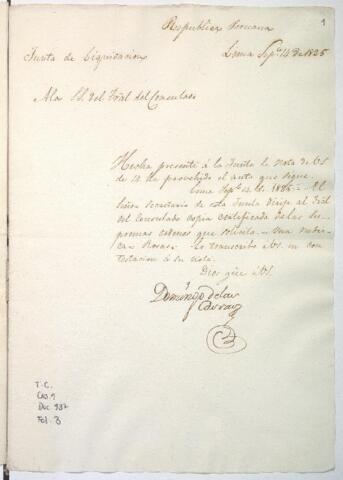 Republica Peruana
1
Junta de Liquidacion
Lima Sepe. 14 de 1825
A los SS. del Tral del Consulado
Hecha presente á la Junta la nota de VS
de 12 ha provehido el auto que sigue.
Lima Sepe. 14 de 1825 = El
Señor Secretario de esta Junta dirija al Tral
del Consulado copia certificada de las Su-
premas ordenes que solicita. = Una rubri-
ca = Rosas. = Lo transcribo á VS. en con
testacion á su nota.
Dios gue á VS.
Domingo de las
T-C.
CAJ. 9
Doc 937
Fol. 3